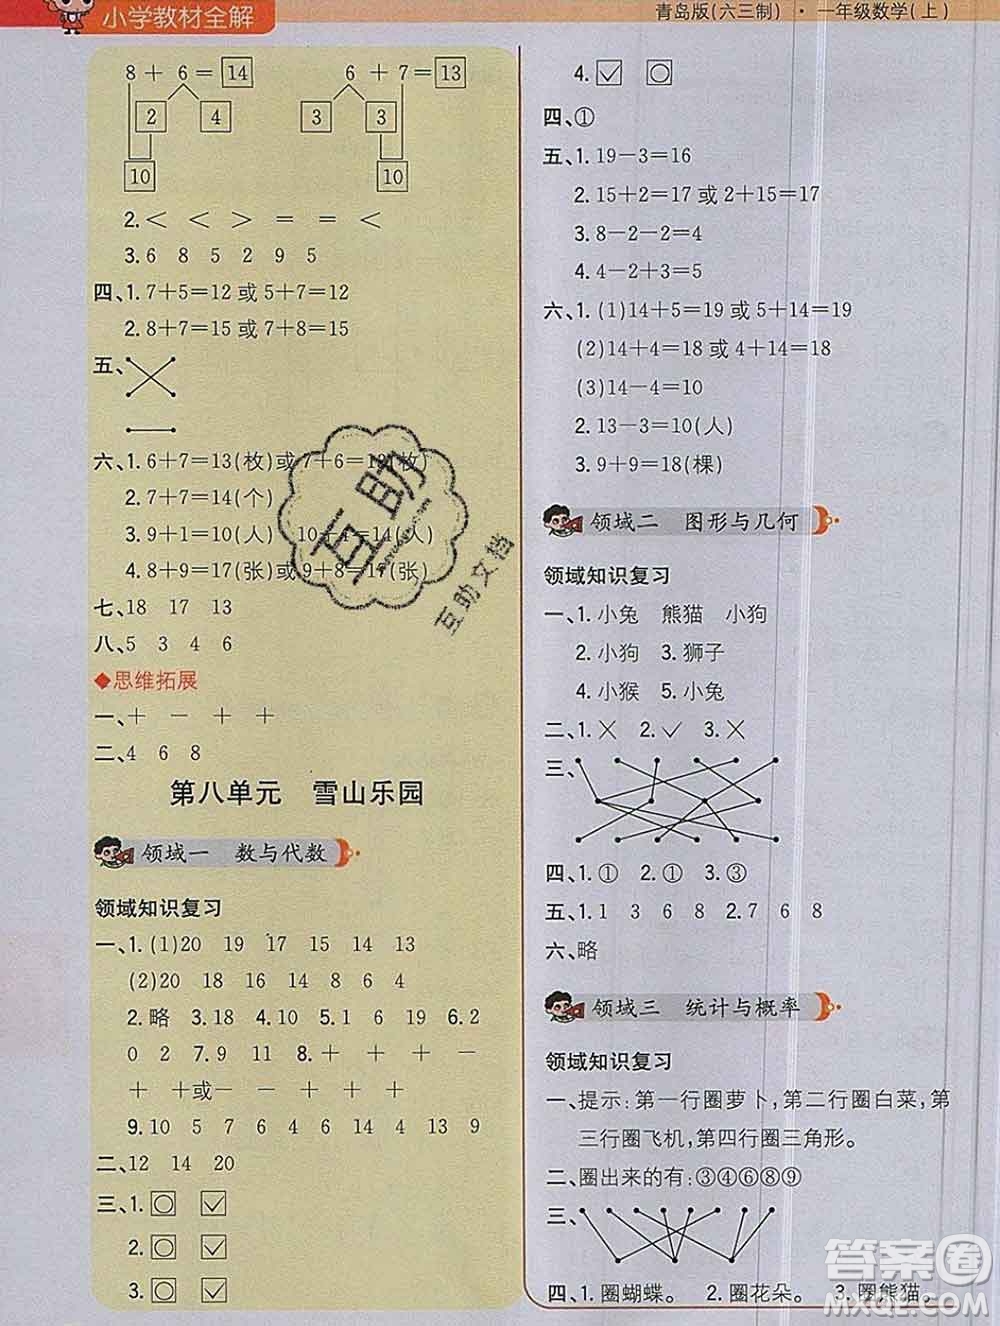 小学教材全解
青岛版(六三制)·一年级数学(上)
8+6=14
2 4
10
6+7=13
3 3
10
2.< < > = = <
3.6 8 5 2 9 5
四、1.7+5=12 或 5+7=12
2.8+7=15 或 7+8=15
五、
六、1.6+7=13(枚)或 7+6=13(枚)
2.7+7=14(个)
3.9+1=10(人) 10+4=14(人)
4.8+9=17(张)或 9+8=17(张)
七、18 17 13
八、5 3 4 6
◆思维拓展
一、+ − + +
二、4 6 8
第八单元 雪山乐园
领域一 数与代数
领域知识复习
一、1.(1)20 19 17 15 14 13
(2)20 18 16 14 8 6 4
2.略 3.18 4.10 5.1 6 19 6.2
0 2 7.9 11 8.+ + + −
+ +或− − + + − +
9.10 5 7 6 4 6 14 13 9
二、12 14 20
三、1.○ ✓
2.○ ✓
3.○ ✓
4.✓ ○
四、①
五、1.19−3=16
2.15+2=17 或 2+15=17
3.8−2−2=4
4.4−1+5=8
六、1.(1)14+5=19 或 5+14=19
(2)14+4=18 或 4+14=18
(3)14−4=10
2.13−3=10(人)
3.9+9=18(棵)
领域二 图形与几何
领域知识复习
一、1.小兔 熊猫 小狗
2.小狗 3.狮子
4.小猴 5.小兔
二、1.✕ 2.✓ 3.✕
三、
四、1.① 2.① 3.③
五、1.1 3 6 8 2.7 6 8
六、略
领域三 统计与概率
领域知识复习
一、提示:第一行圈萝卜,第二行圈白菜,第
三行圈飞机,第四行圈三角形。
二、圈出来的有:③④⑥⑧⑨
三、
四、1.圈蝴蝶。 2.圈花朵。 3.圈熊猫。
互助
互助文档
答案圈
MXQE.COM